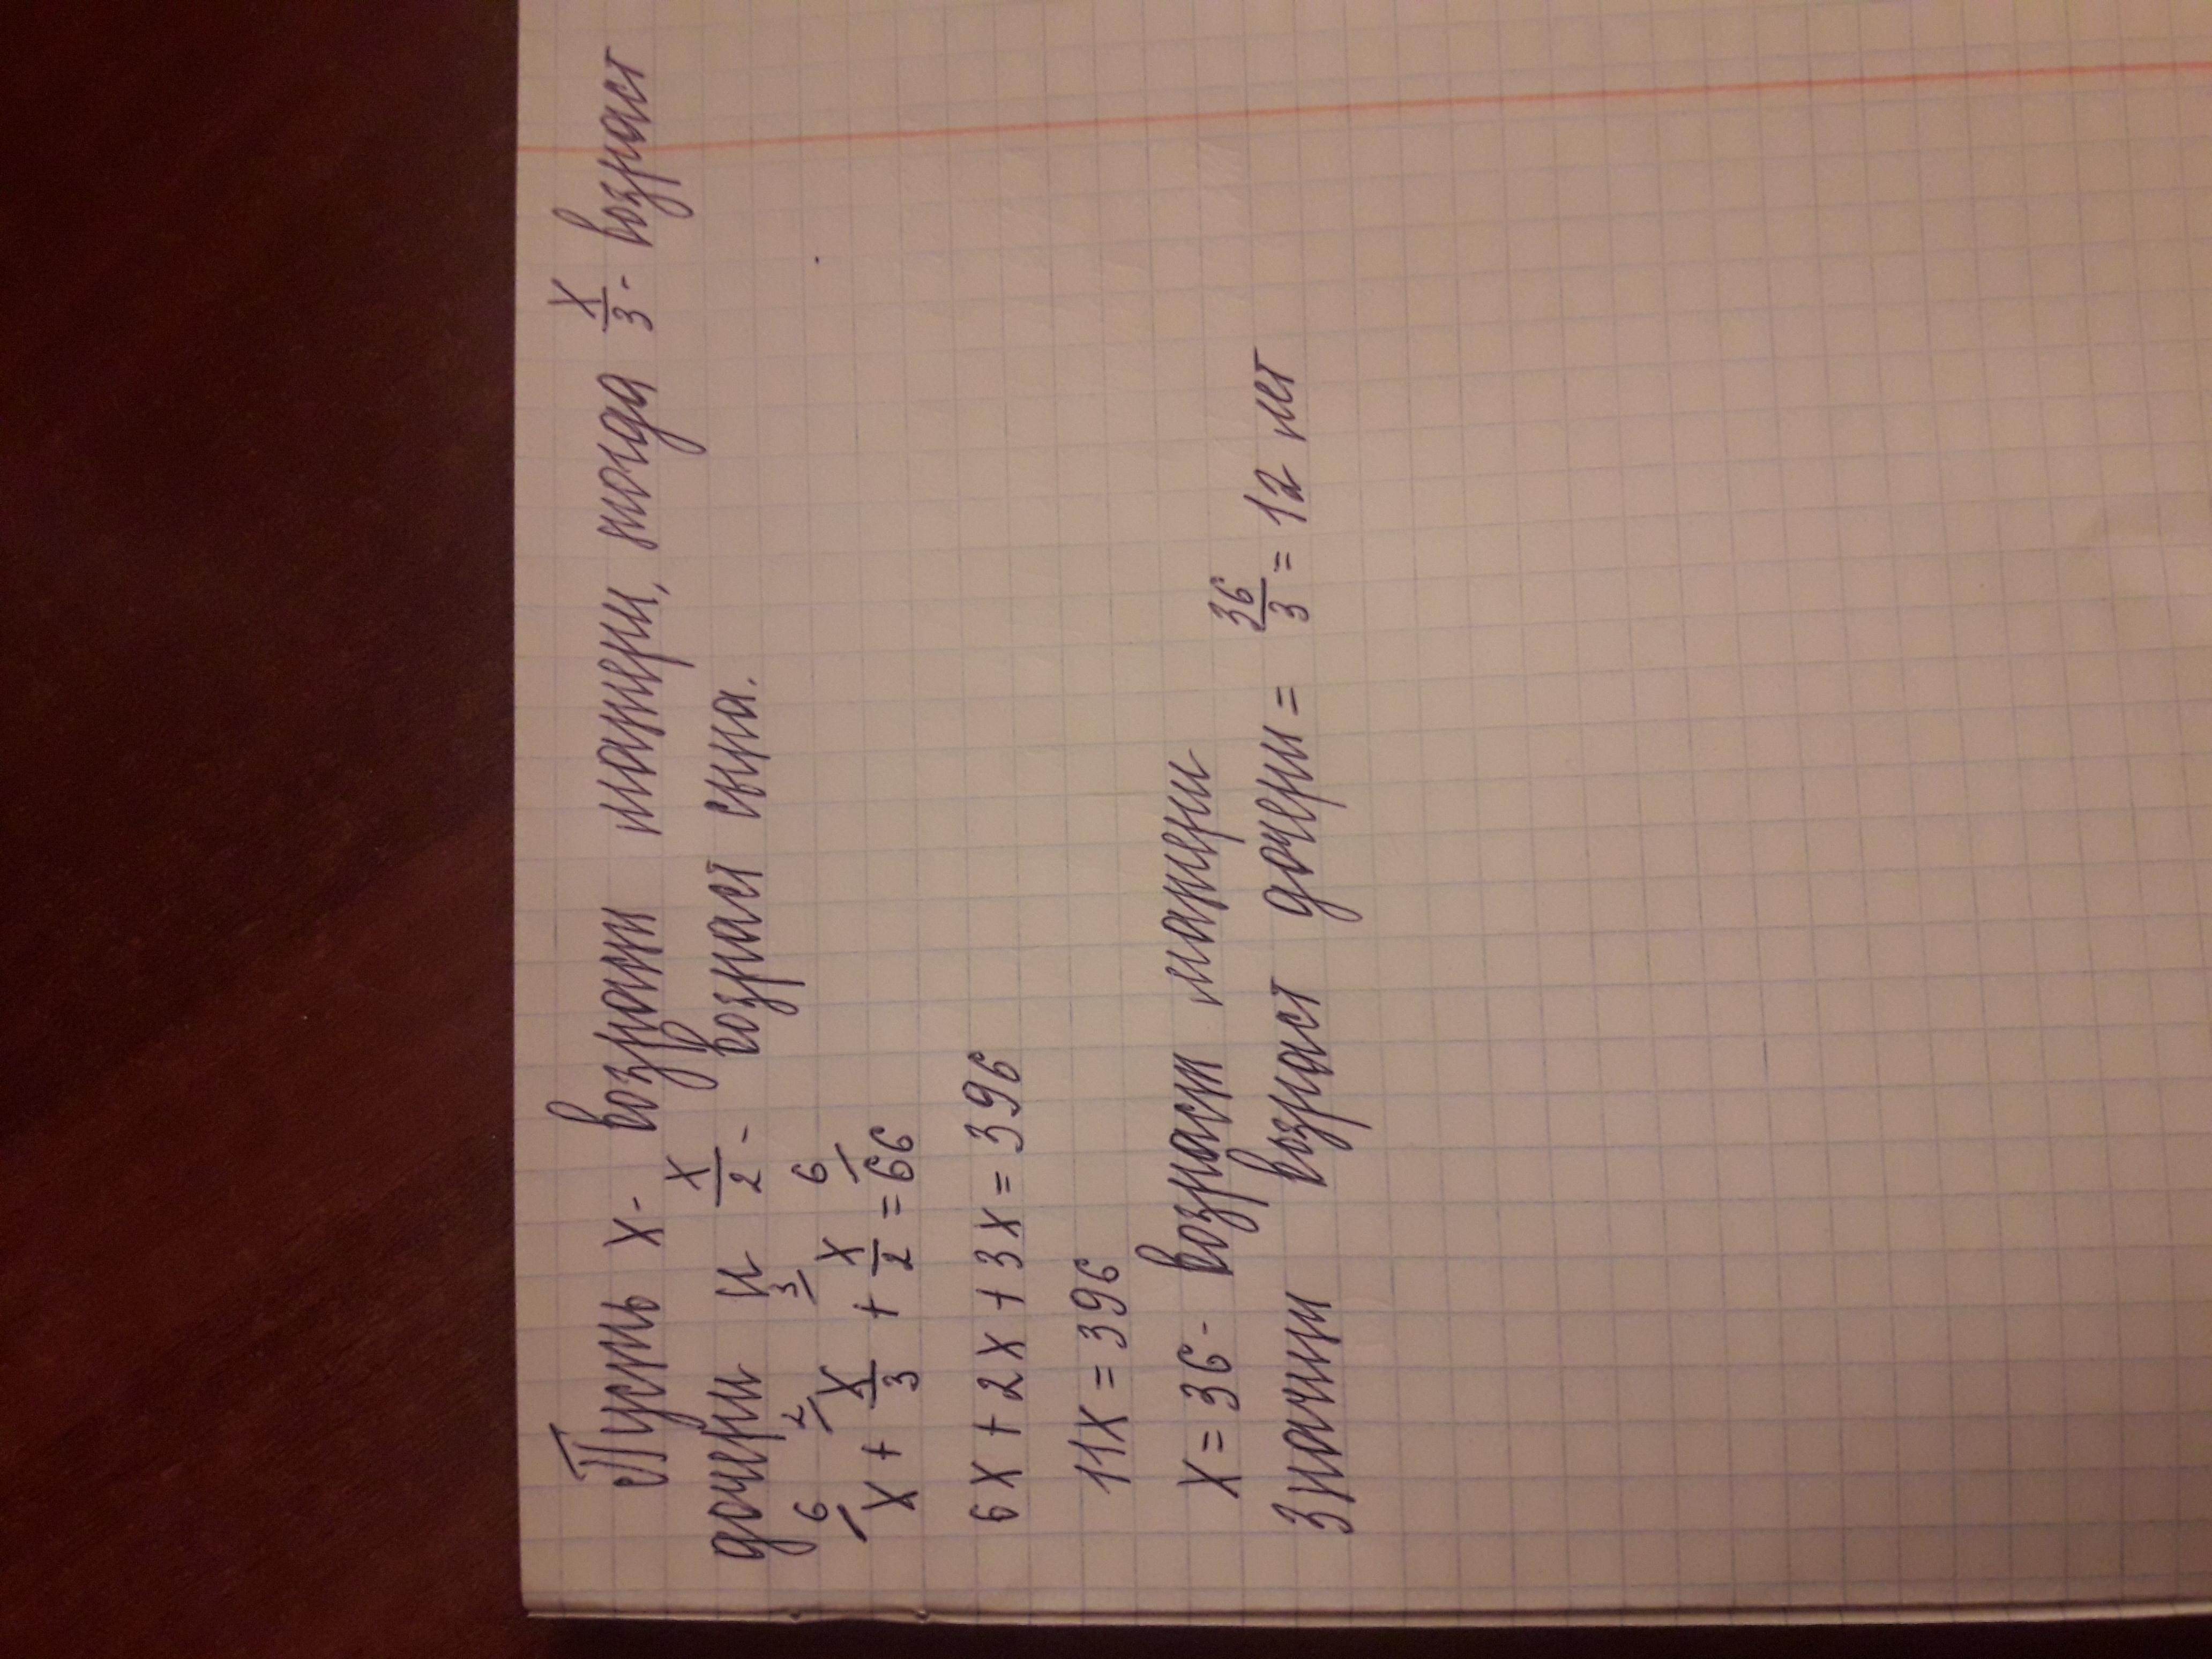 Пусть x - возраст матери, тогда x/3 - возраст
дочери и x/2 - возраст сына.
6 2 3 6
x + x/3 + x/2 = 66
6x + 2x + 3x = 396
11x = 396
x = 36 - возраст матери
Значит возраст дочери = 36/3 = 12 лет